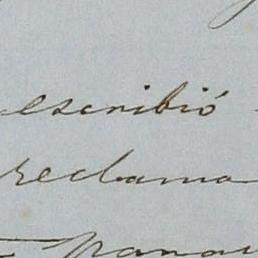 escribió
reclama